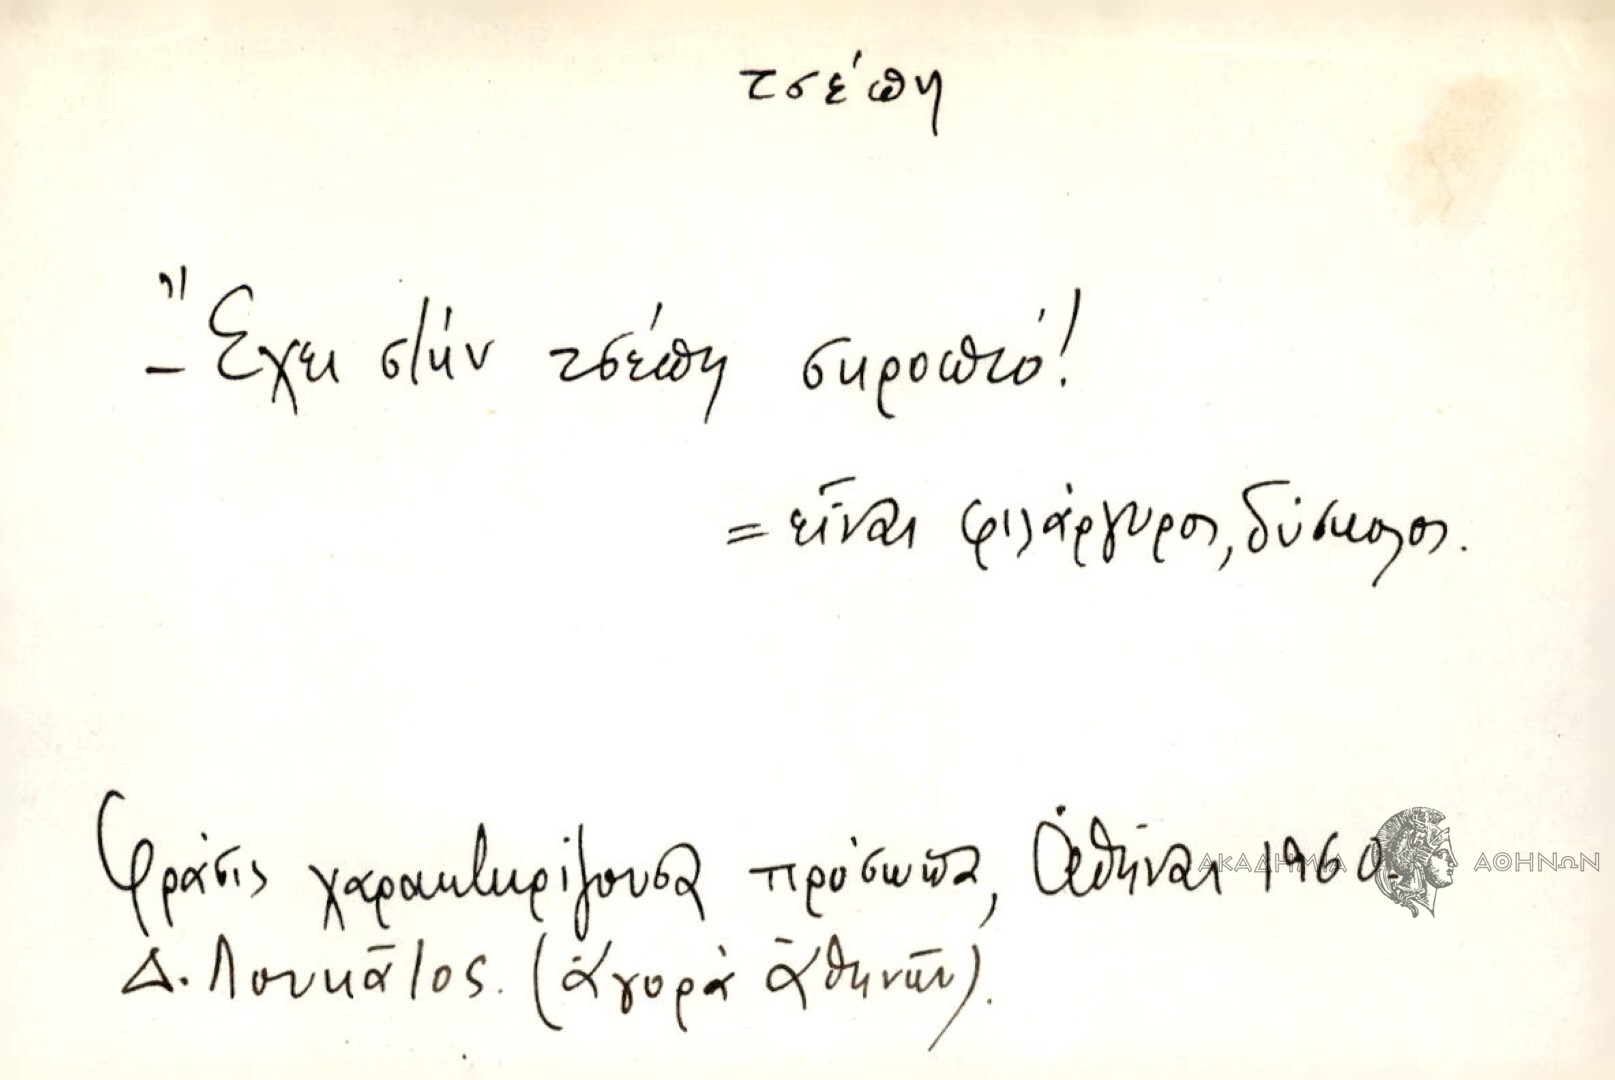 τσέπη
– Ἔχει στὴν τσέπη σκροπιό!
= εἶναι φιλάργυρος, δύσκολος.
Φράσις χαρακτηρίζουσα πρόσωπα, Ἀθῆναι 1960.
Δ. Λουκᾶτος. (ἀγορὰ Ἀθηνῶν).
ΑΚΑΔΗΜΙΑ ΑΘΗΝΩΝ